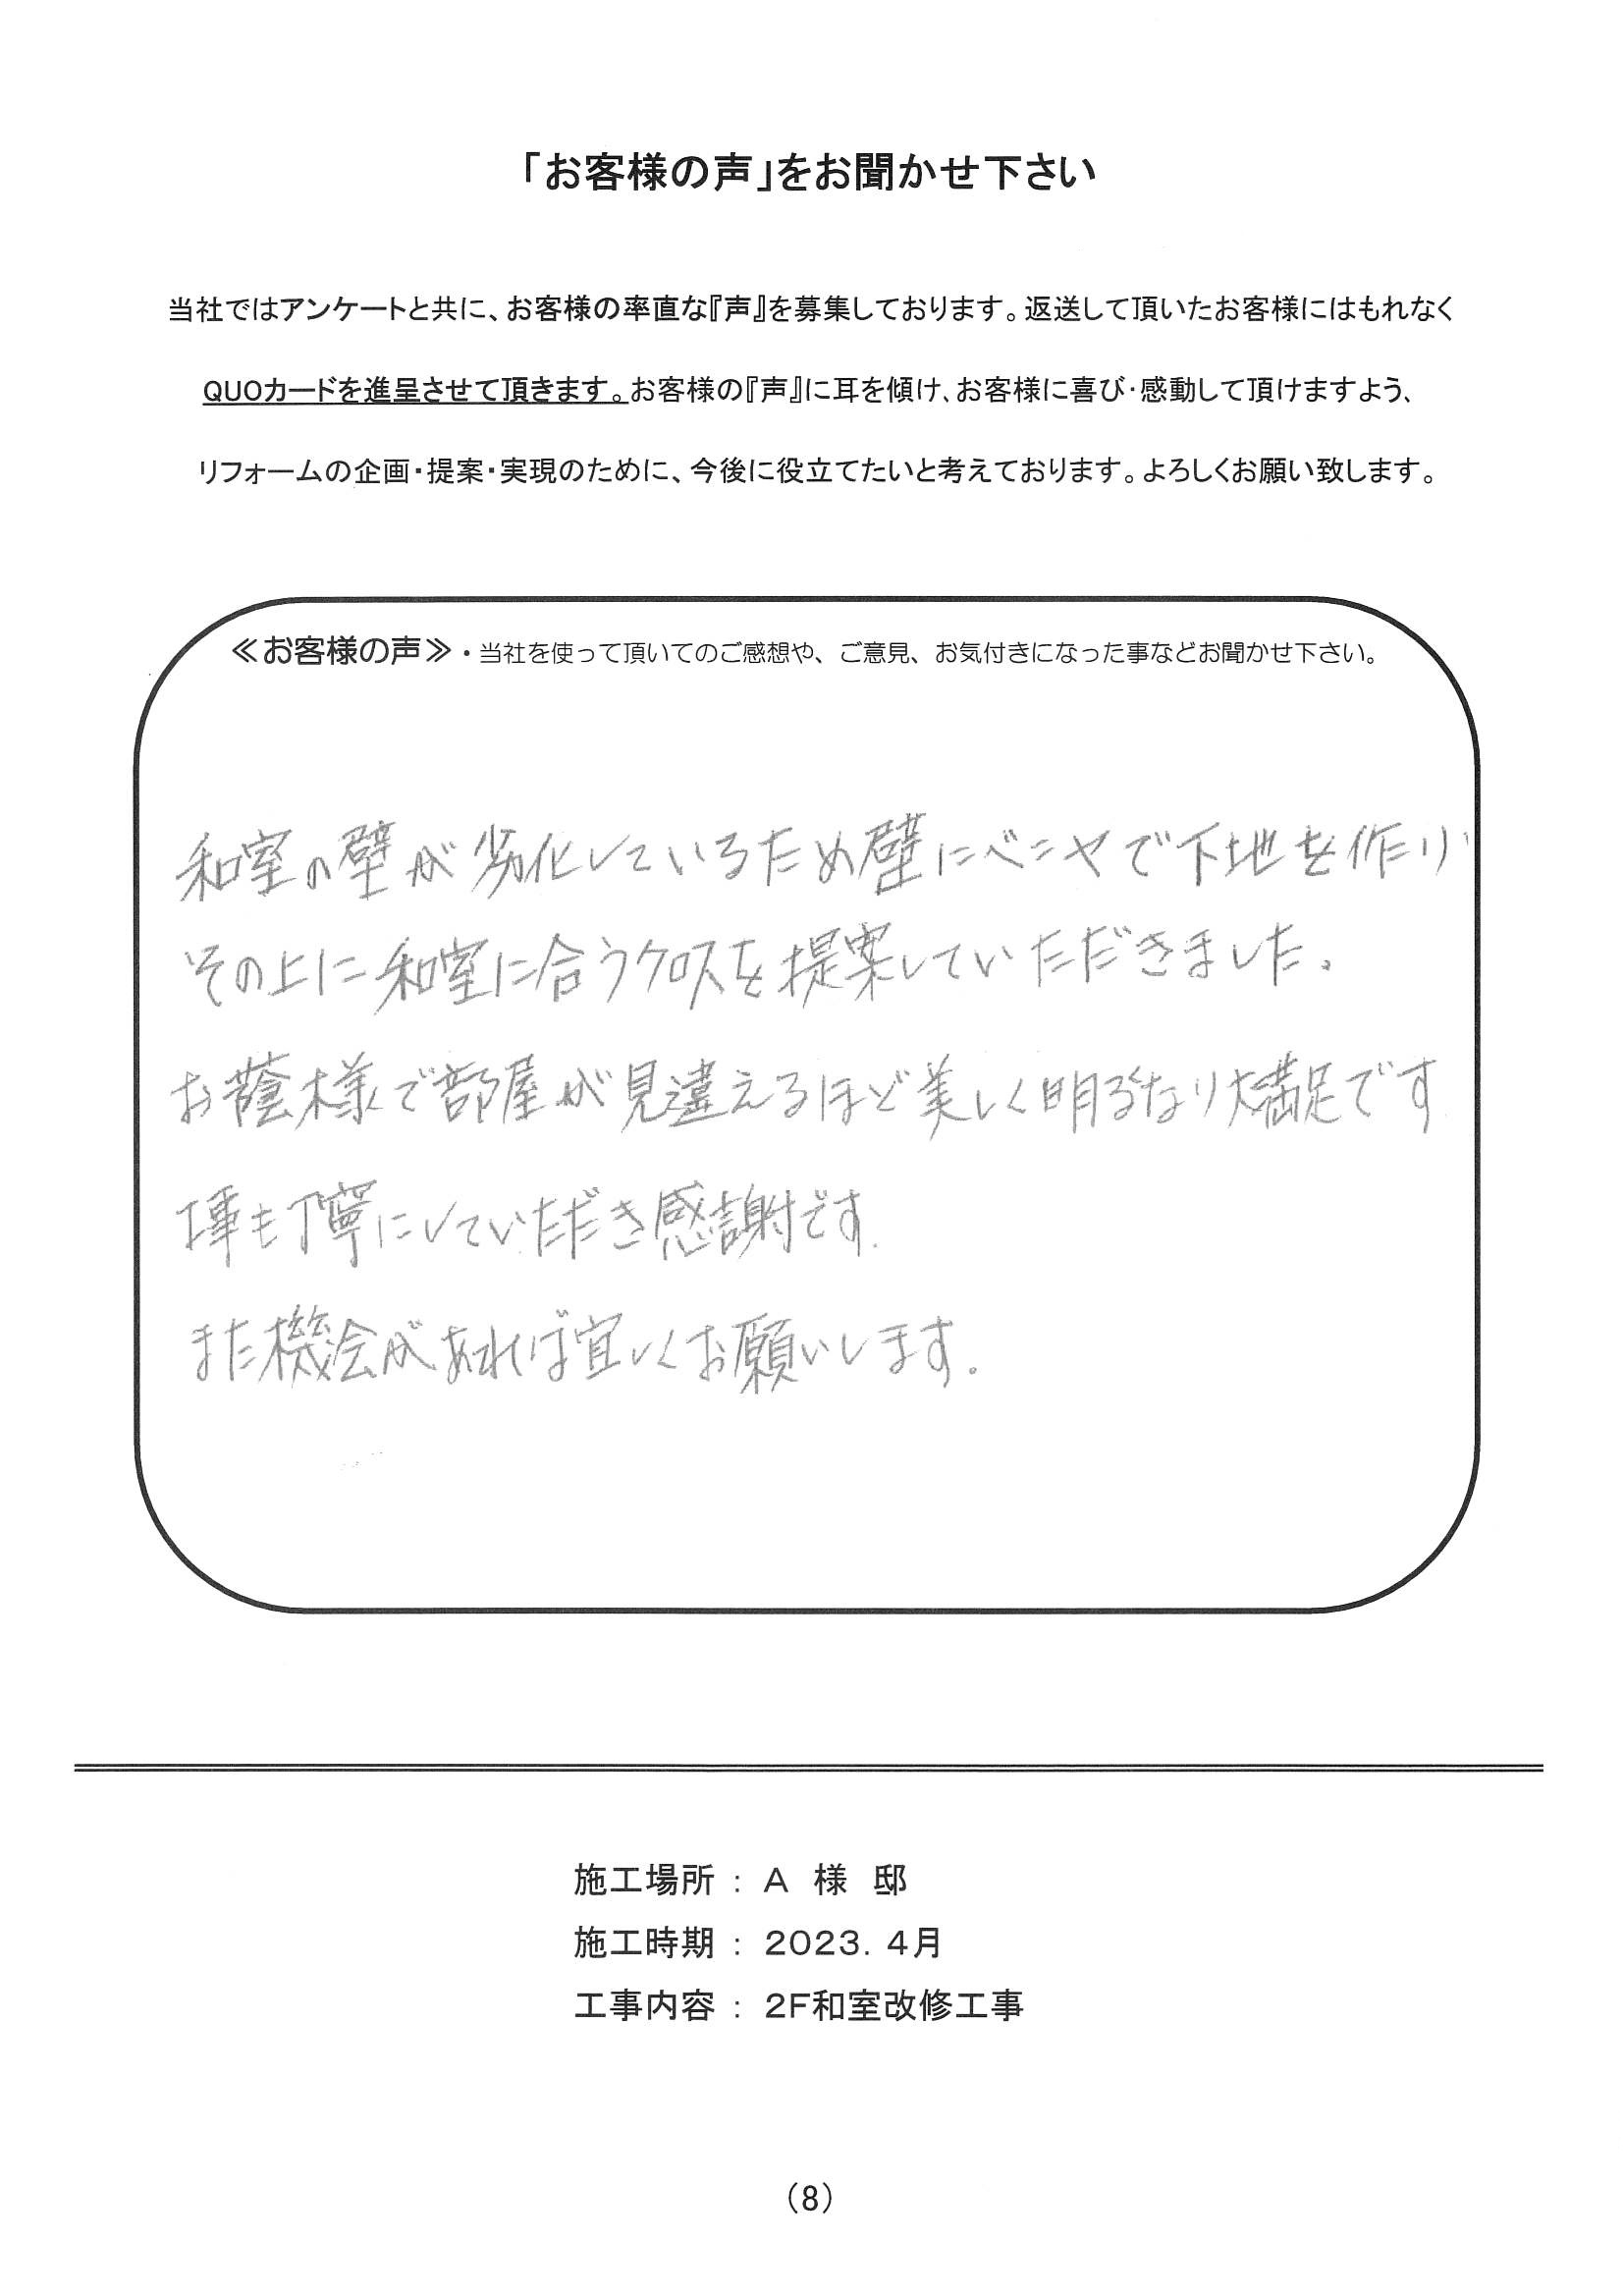 「お客様の声」をお聞かせ下さい
当社ではアンケートと共に、お客様の率直な『声』を募集しております。返送して頂いたお客様にはもれなく
QUOカードを進呈させて頂きます。お客様の『声』に耳を傾け、お客様に喜び・感動して頂けますよう、
リフォームの企画・提案・実現のために、今後に役立てたいと考えております。よろしくお願い致します。
≪お客様の声≫・当社を使って頂いてのご感想や、ご意見、お気付きになった事などお聞かせ下さい。
和室の壁が劣化しているため壁にベニヤで下地を作り
その上に和室に合うクロスを提案していただきました。
お蔭様で部屋が見違えるほど美しく明るくなり大満足です
工事も丁寧にしていただき感謝です.
また機会があれば宜しくお願いします.
施工場所 : A 様 邸
施工時期 : 2023. 4月
工事内容 : 2F和室改修工事
(8)